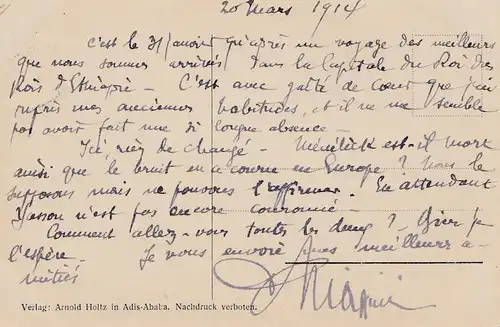 20 Mars 1914
c'est le 31 janvier qu'après un voyage des meilleurs
que nous sommes arrivés dans la Capitale du Roi des
Rois d'Ethiopie - C'est avec gaîté de cœur que j'ai
repris mes anciennes habitudes, et il ne me semble
pas avoir fait une si longue absence -
Ici, rien de changé - Ménélick est-il mort
ainsi que le bruit en a couru en Europe ? Nous le
supposons mais ne pouvons l'affirmer. En attendant
Yassou n'est pas encore couronné -
Comment allez-vous toutes les deux ? Bien je
l'espère. Je vous envoie mes meilleures a-
mitiés
Verlag: Arnold Holtz in Adis-Ababa. Nachdruck verboten.